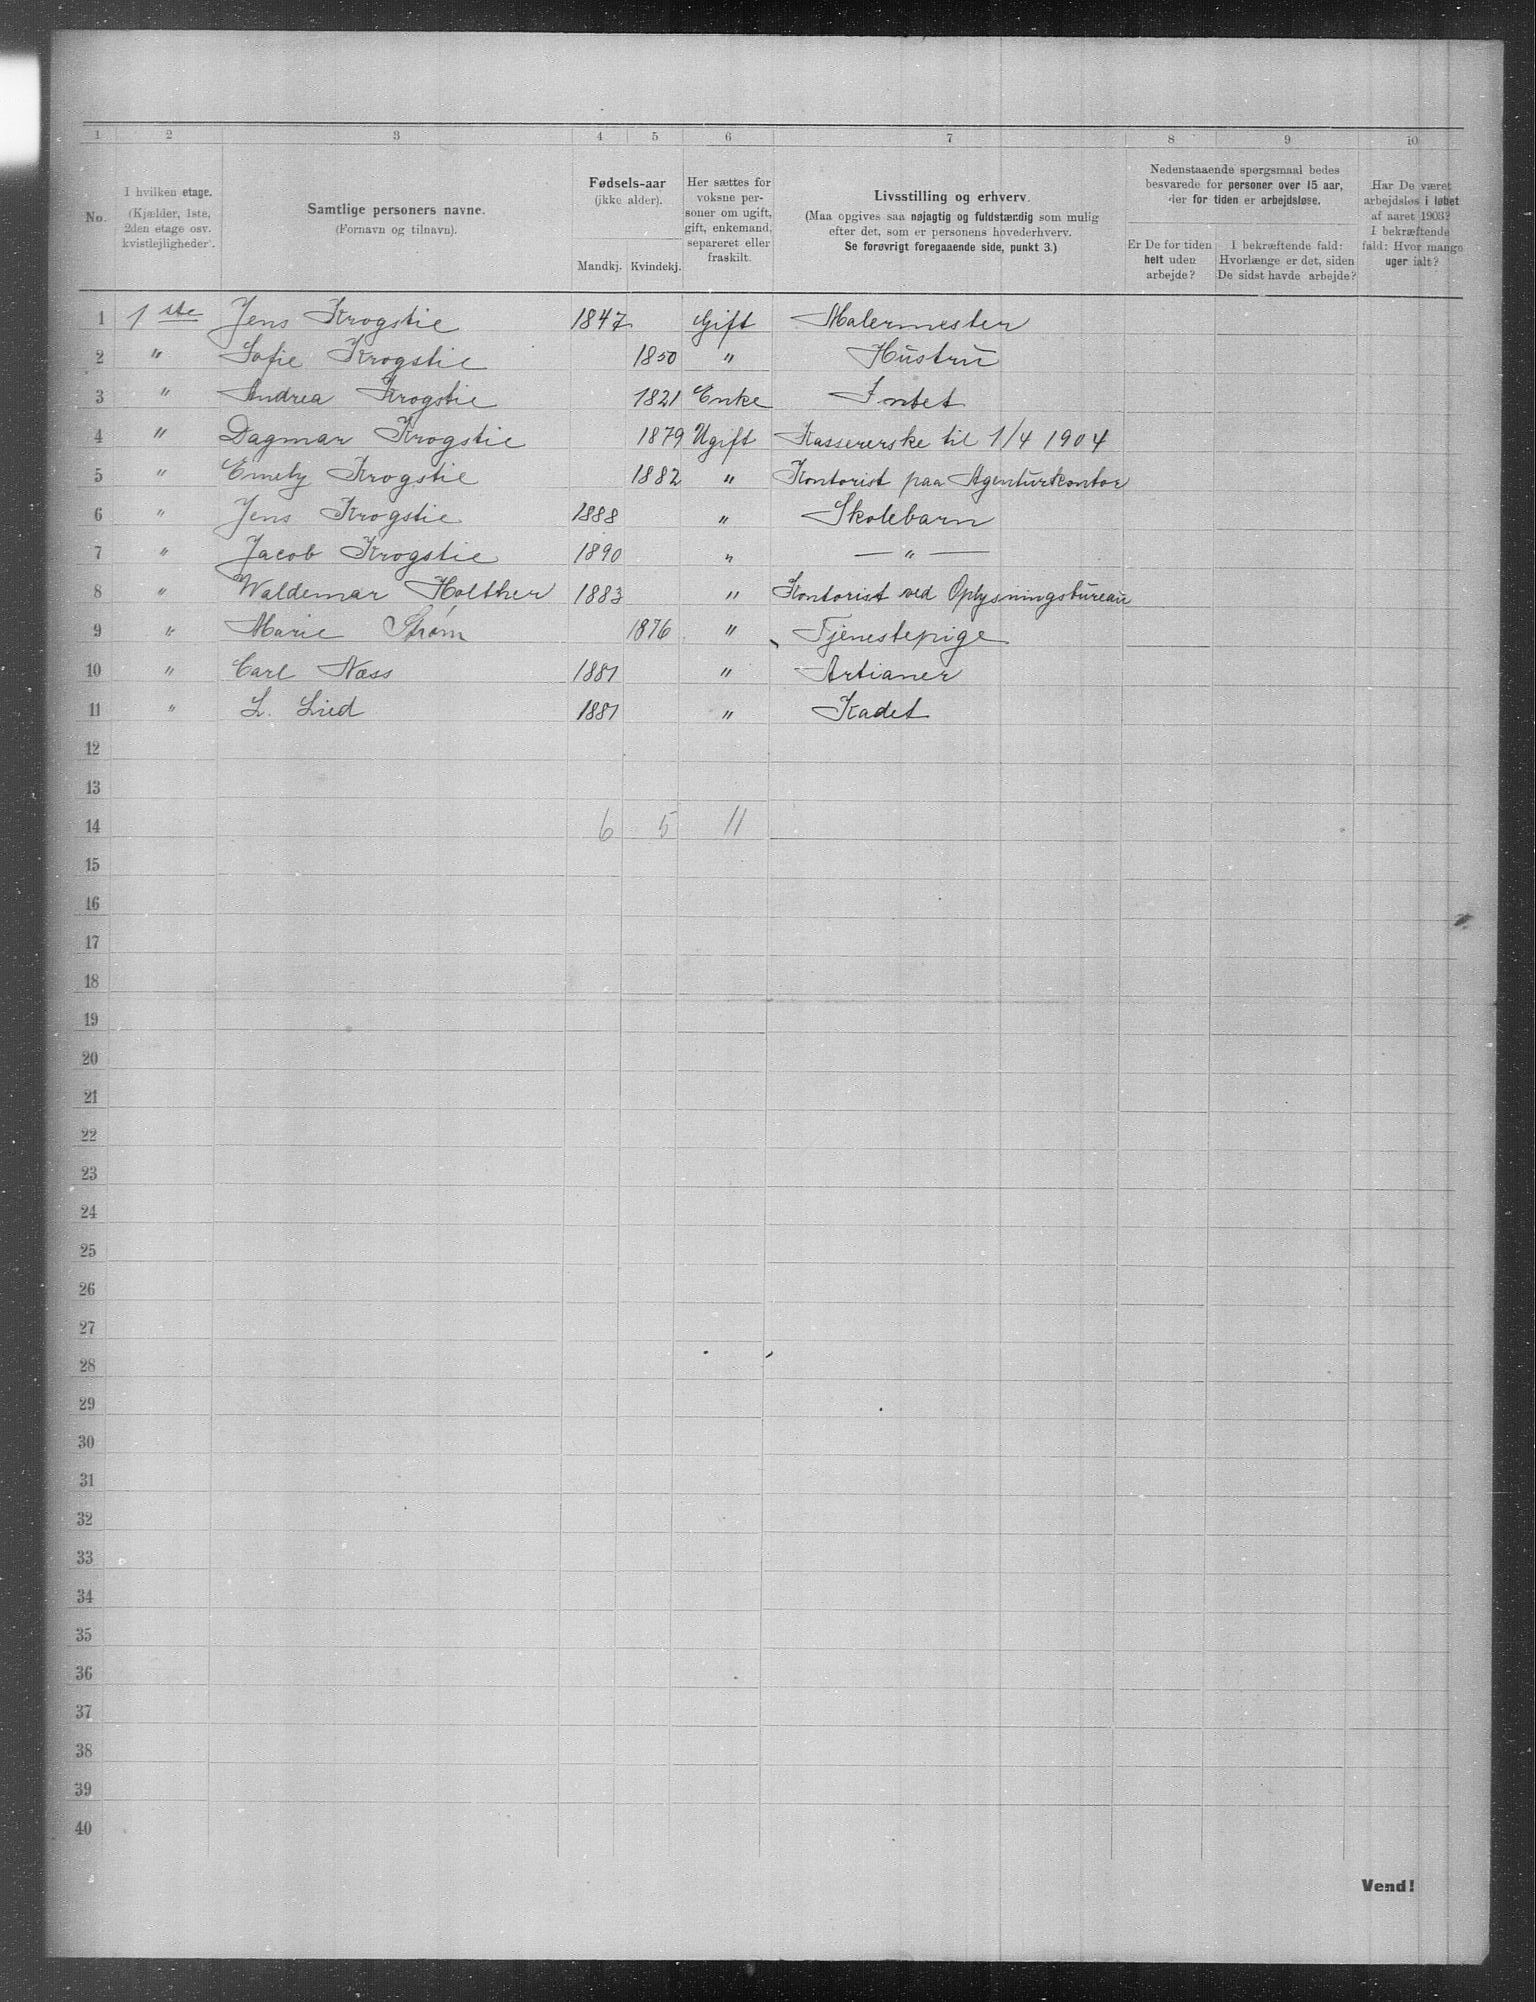 1 2 3 4 5 6 7 8 9 10
No.
I hvilken etage.
(Kjælder, 1ste,
2den etage osv.
kvistlejligheder).
Samtlige personers navne.
(Fornavn og tilnavn).
Fødsels-aar
(ikke alder).
Mandkj. Kvindekj.
Her sættes for
voksne per-
soner om ugift,
gift, enkemand,
separeret eller
fraskilt.
Livsstilling og erhverv.
(Maa opgives saa nøjagtig og fuldstændig som mulig
efter det, som er personens hovederhverv.
Se forøvrigt foregaaende side, punkt 3.)
Nedenstaaende spørgsmaal bedes
besvarede for personer over 15 aar,
der for tiden er arbejdsløse.
Er De for tiden
helt uden
arbejde?
I bekræftende fald:
Hvorlænge er det, siden
De sidst havde arbejde?
Har De været
arbejdsløs i løbet
af aaret 1903?
I bekræftende
fald: Hvor mange
uger ialt?
1 1ste Jens Krogstie 1847 Gift Malermester
2 " Sofie Krogstie 1850 " Hustru
3 " Andrea Krogstie 1821 Enke Intet
4 " Dagmar Krogstie 1879 Ugift Kassererske til 1/4 1904
5 " Emely Krogstie 1882 " Kontorist paa Agenturkontor
6 " Jens Krogstie 1888 " Skolebarn
7 " Jacob Krogstie 1890 " — " —
8 " Waldemar Holther 1883 " Kontorist ved Oplysningsbureau
9 " Marie Strøm 1876 " Tjenestepige
10 " Carl Næss 1881 " Artianer
11 " L. Lied 1881 " Kadet
12
13
14 6 5 11
15
16
17
18
19
20
21
22
23
24
25
26
27
28
29
30
31
32
33
34
35
36
37
38
39
40
Vend!